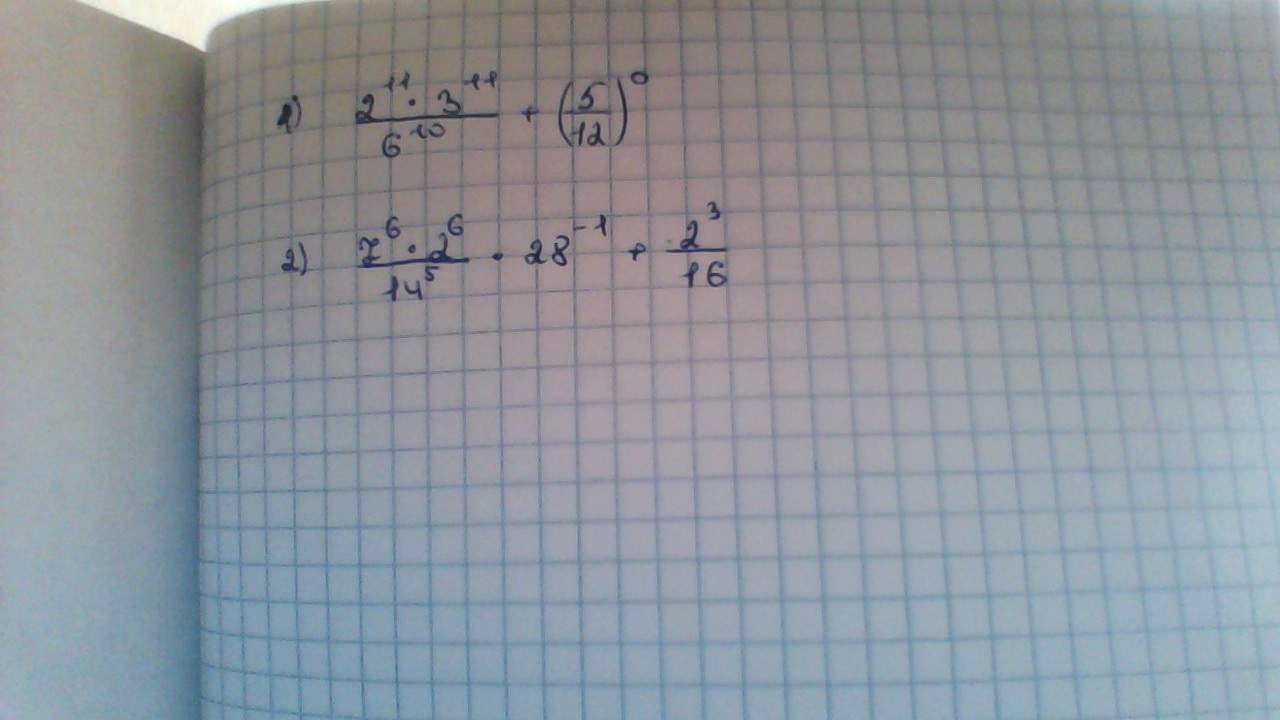 1) \frac{2^{11} \cdot 3^{11}}{6^{10}} + \left(\frac{5}{12}\right)^0
2) \frac{7^6 \cdot 2^6}{14^5} \cdot 28^{-1} + \frac{2^3}{16}